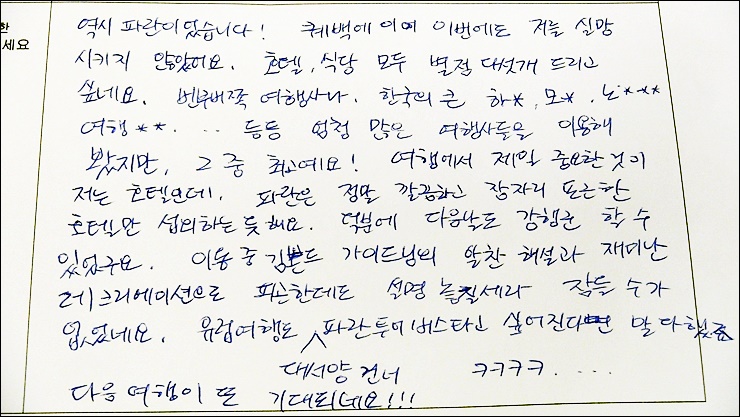 한
세요
역시 파란이었습니다! 퀘백에 이어 이번에도 저를 실망
시키지 않았어요. 호텔, 식당 모두 별점 다섯개 드리고
싶네요. 밴쿠버쪽 여행사나, 한국의 큰 하*, 모*, 노***
여행**... 등등 엄청 많은 여행사들을 이용해
봤지만, 그 중 최고예요! 여행에서 제일 중요한 것이
저는 호텔인데, 파란은 정말 깔끔하고 잠자리 포근한
호텔만 섭외하는 듯해요. 덕분에 다음날도 강행군 할 수
있었구요. 이동 중 가이드님의 알찬 해설과 재미난
레크리에이션으로 피곤한데도 설명 놓칠세라 잠들 수가
없었네요. 유럽여행도 파란투어 버스타고 싶어진다면 말 다했죠
대서양 건너 ㅋㅋㅋㅋ.....
다음 여행이 또 기대되네요!!!